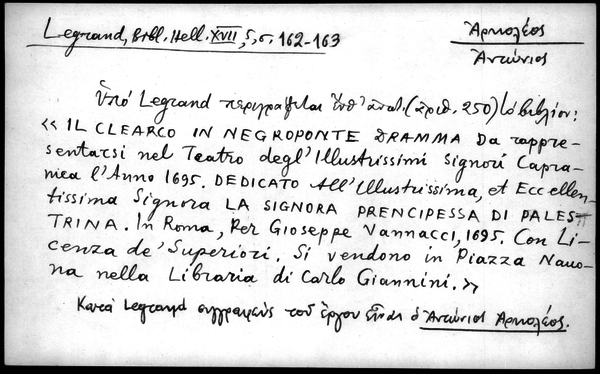 Legrand, Bibl. Hell. XVII, 5, σ. 162-163
Ἀρκολέος
Ἀντώνιος
Ὑπό Legrand περιγράφεται ὑπ' ἀριθ. (ἀριθ. 250) τό βιβλίον:
« IL CLEARCO IN NEGROPONTE DRAMMA Da rappre-
sentarsi nel Teatro degl' Illustrissimi Signori Capra-
nica l'Anno 1695. DEDICATO All' Illustrissima, et Eccellen-
tissima Signora LA SIGNORA PRENCIPESSA DI PALES-
TRINA. In Roma, Per Gioseppe Vannacci, 1695. Con Li-
cenza de' Superiori. Si vendono in Piazza Navo-
na nella Libraria di Carlo Giannini. »
Κατά Legrand συγγραφεύς τοῦ ἔργου εἶναι ὁ Ἀντώνιος Ἀρκολέος.